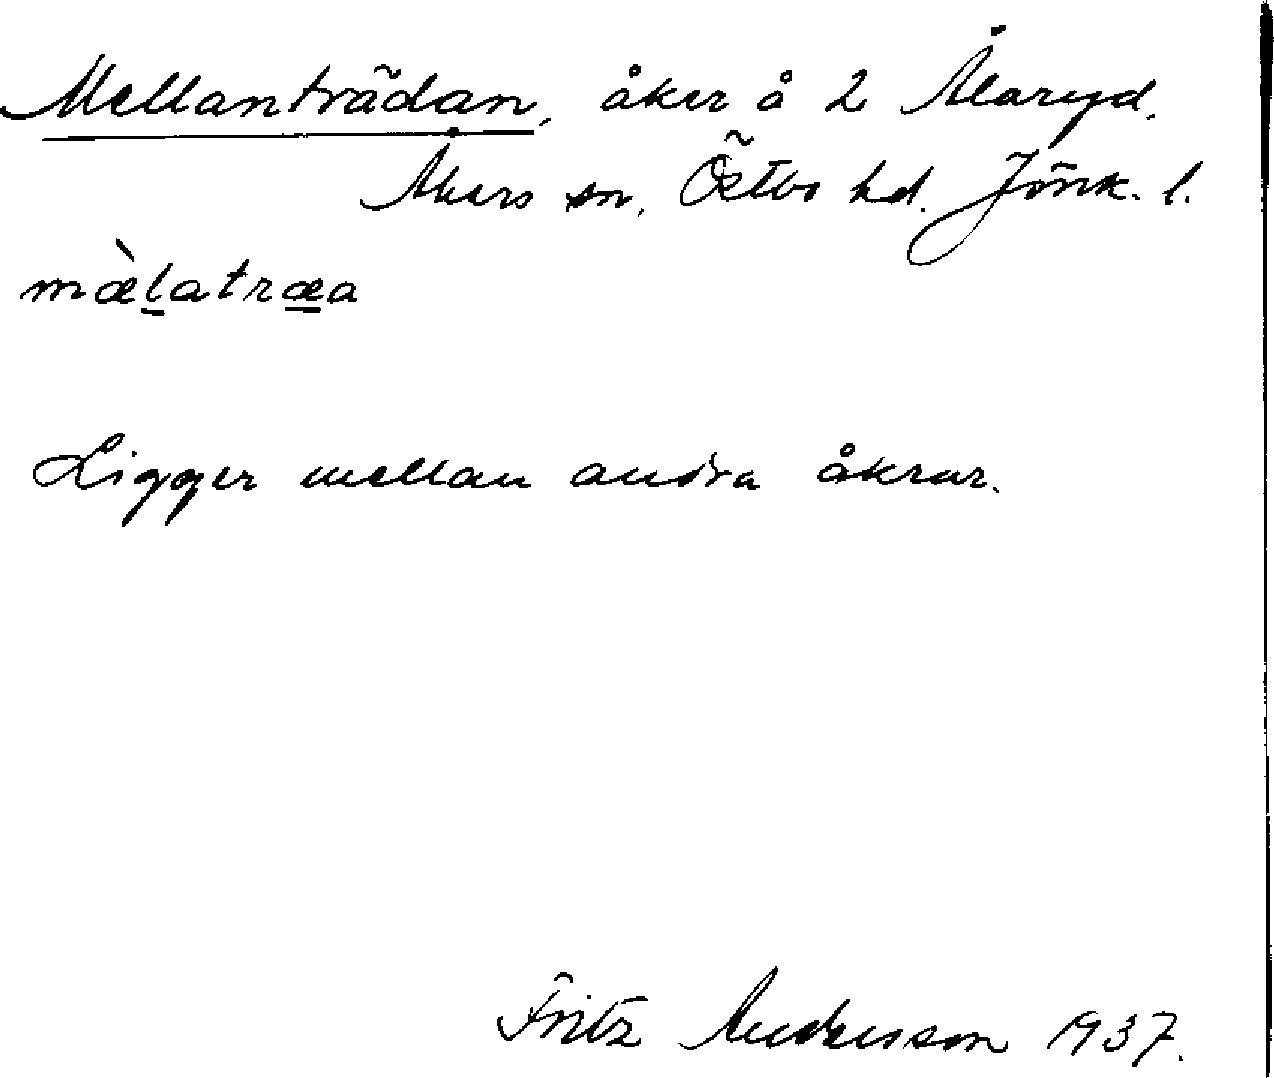 Mellanträdan, åker å 2 Ålaryd.
Åkers sn, Östbo hd. Jönk. l.
mæ̀latræa
Ligger mellan andra åkrar.
Fritz Andersson 1937.